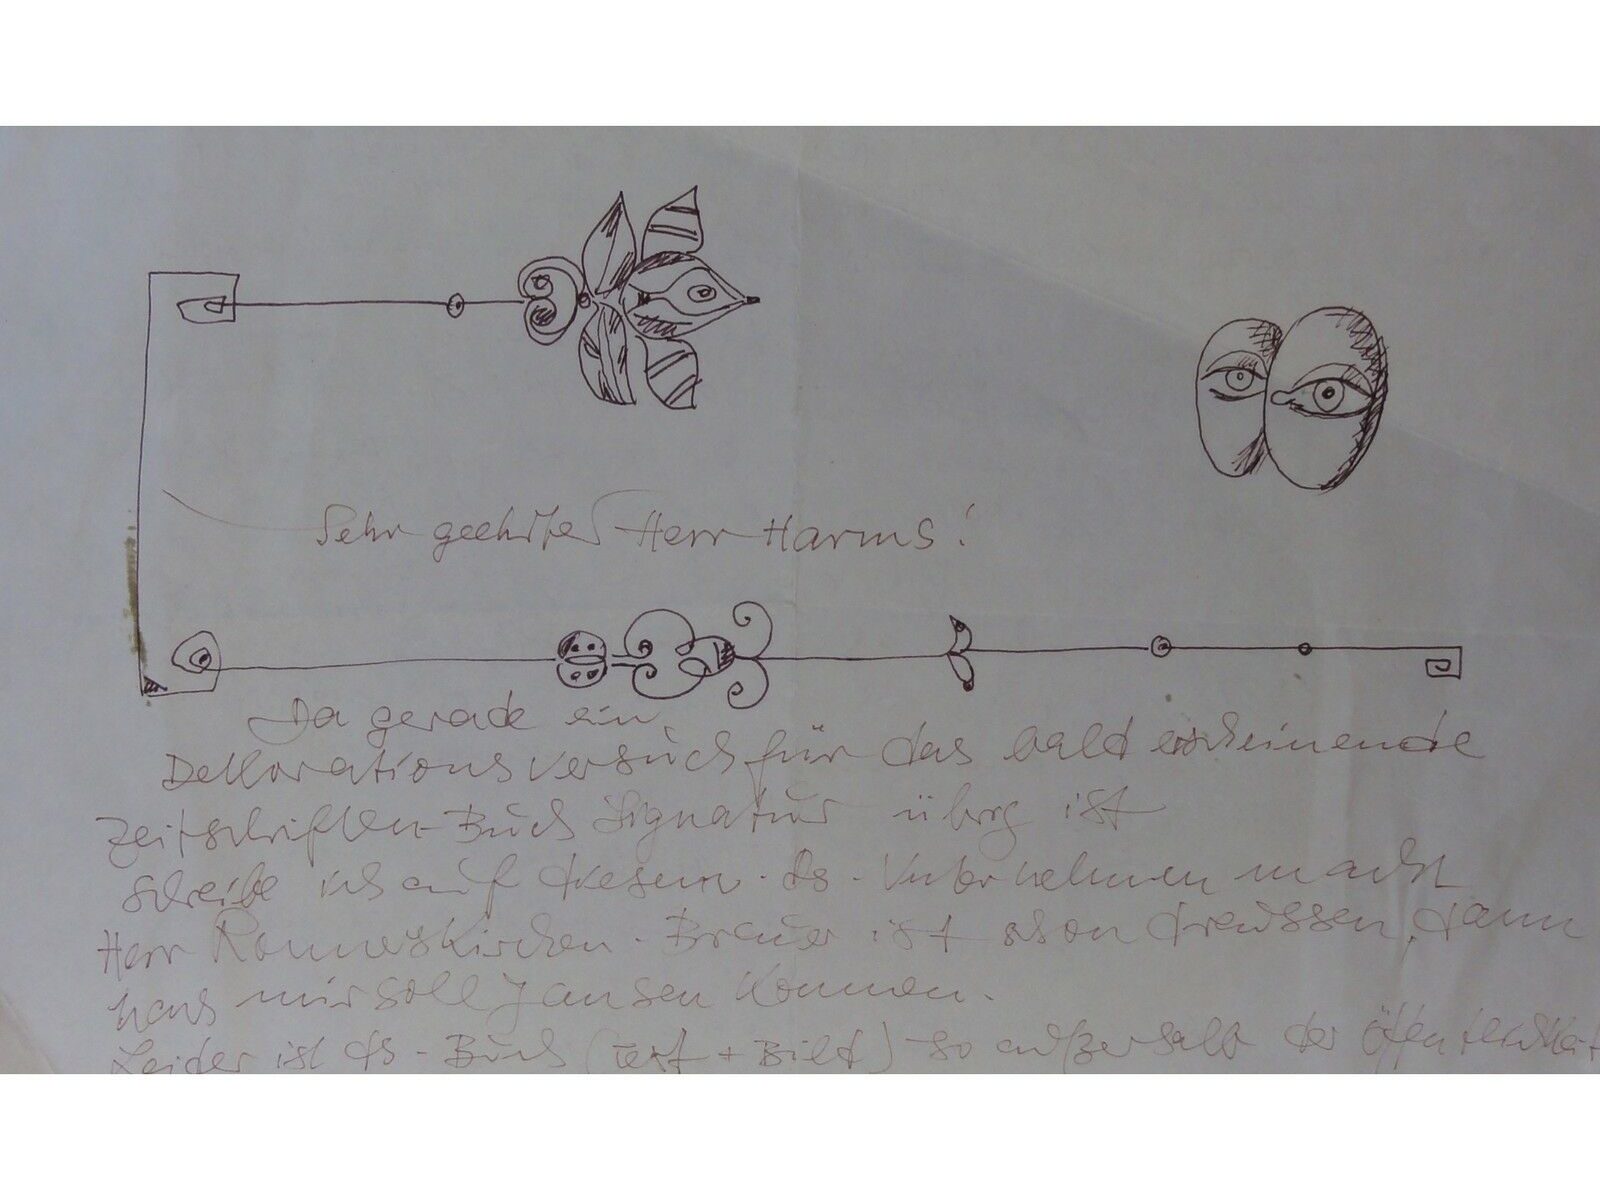 Sehr geehrter Herr Harms!
Da gerade ein
Dekorationsversuch für das bald erscheinende
Zeitschriften-Buch Signatur übrig ist
schreibe ich auf diesem. Ds. Unternehmen macht
Herr Brauer ist schon draussen, dann
nach mir soll Janssen kommen.
Leider ist ds. Buch (Text + Bild) so außerhalb der Öffentlichkeit